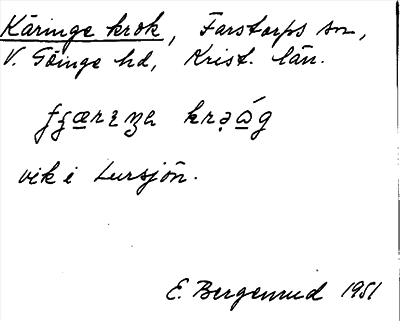 Käringe krok, Farstorps sn,
V. Göinge hd, Krist. län.
vik i Lursjön.
E. Bergemud 1951